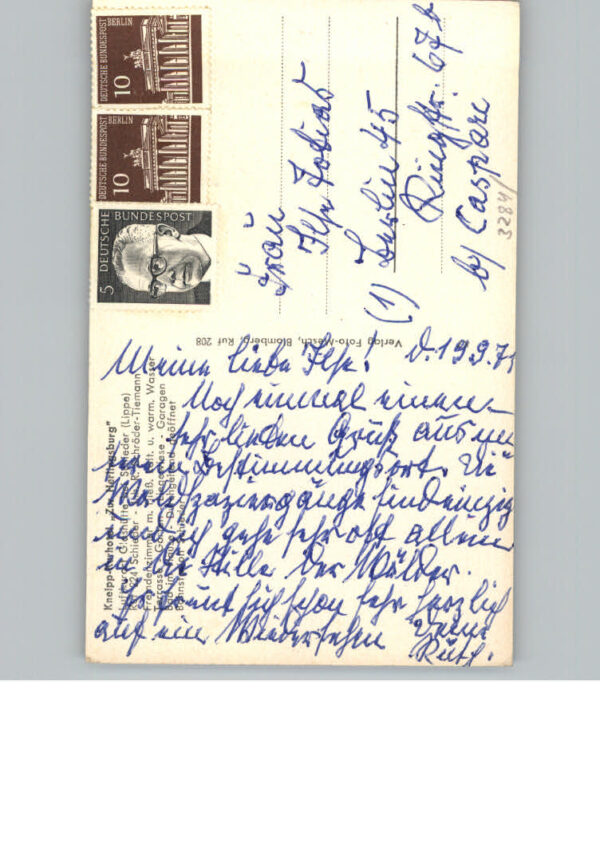 DEUTSCHE BUNDESPOST
BERLIN
10
DEUTSCHE BUNDESPOST
BERLIN
10
DEUTSCHE BUNDESPOST
5
Frau
Ilse Tobias
(1) Berlin 45
Ringstr. 67
b/ Caspari
3284/
Verlag Foto-Mesch, Blomberg, Ruf 208
Kneipp-Kurhotel „Zur Herlingsburg"
Schieder (Lippe)
Schröder-Tiemann
Fremdenzimmer m. fließ. kalt. u. warm. Wasser
Terrasse - Garten - Liegewiese - Garagen
geöffnet
Meine liebe Ilse! d. 19.9.71
Noch einmal einen
sehr lieben Gruß aus
Bestimmungsort. Die
Waldspaziergänge sind einzig
und ich gehe sehr oft allein
in die Stille der Wälder.
Es freut sich schon sehr herzlich
auf ein Wiedersehen Deine
Ruth.